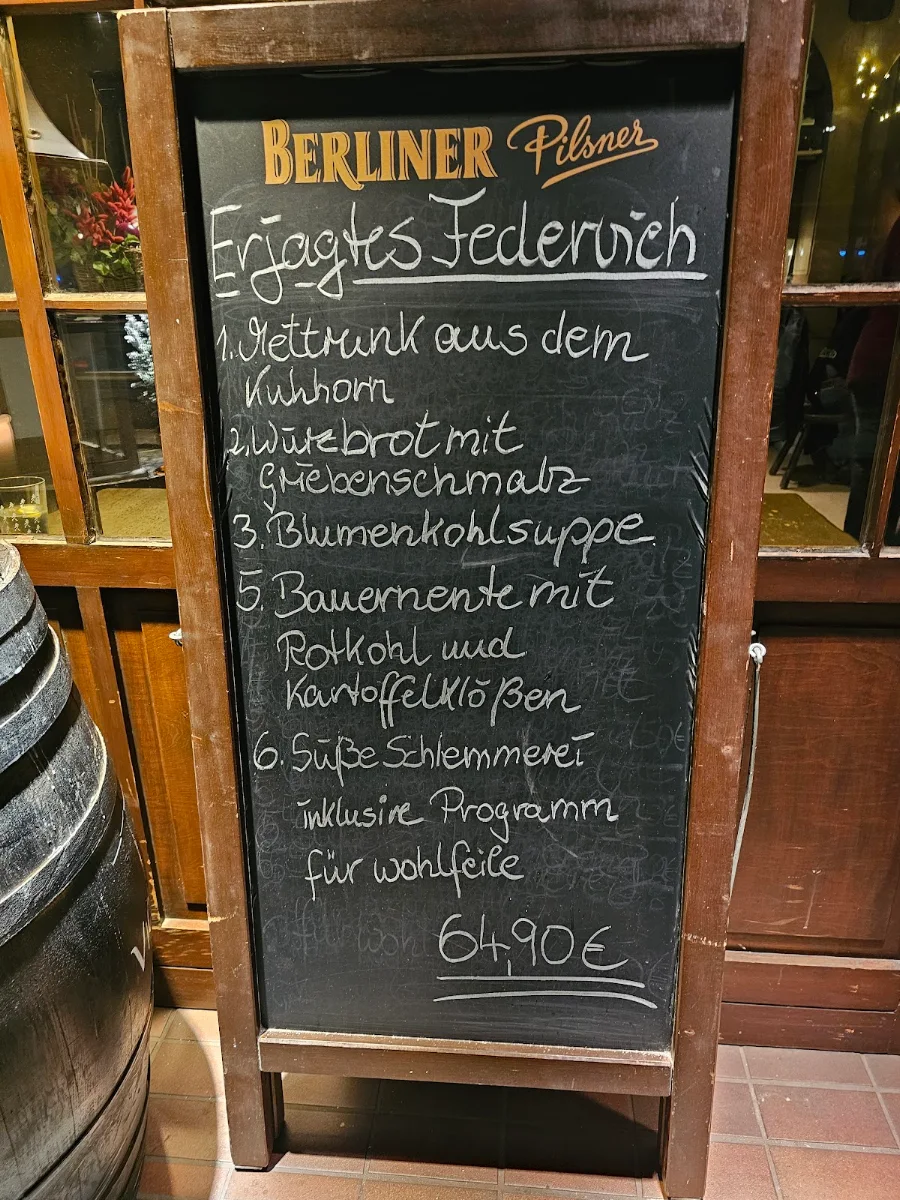 BERLINER Pilsner
Erjagtes Federvich
1. Mettrunk aus dem
Kuhhorn
2. Würzbrot mit
Griebenschmalz
3. Blumenkohlsuppe
5. Bauernente mit
Rotkohl und
Kartoffelklößen
6. Süße Schlemmerei
inklusive Programm
für wohlfeile
64,90€